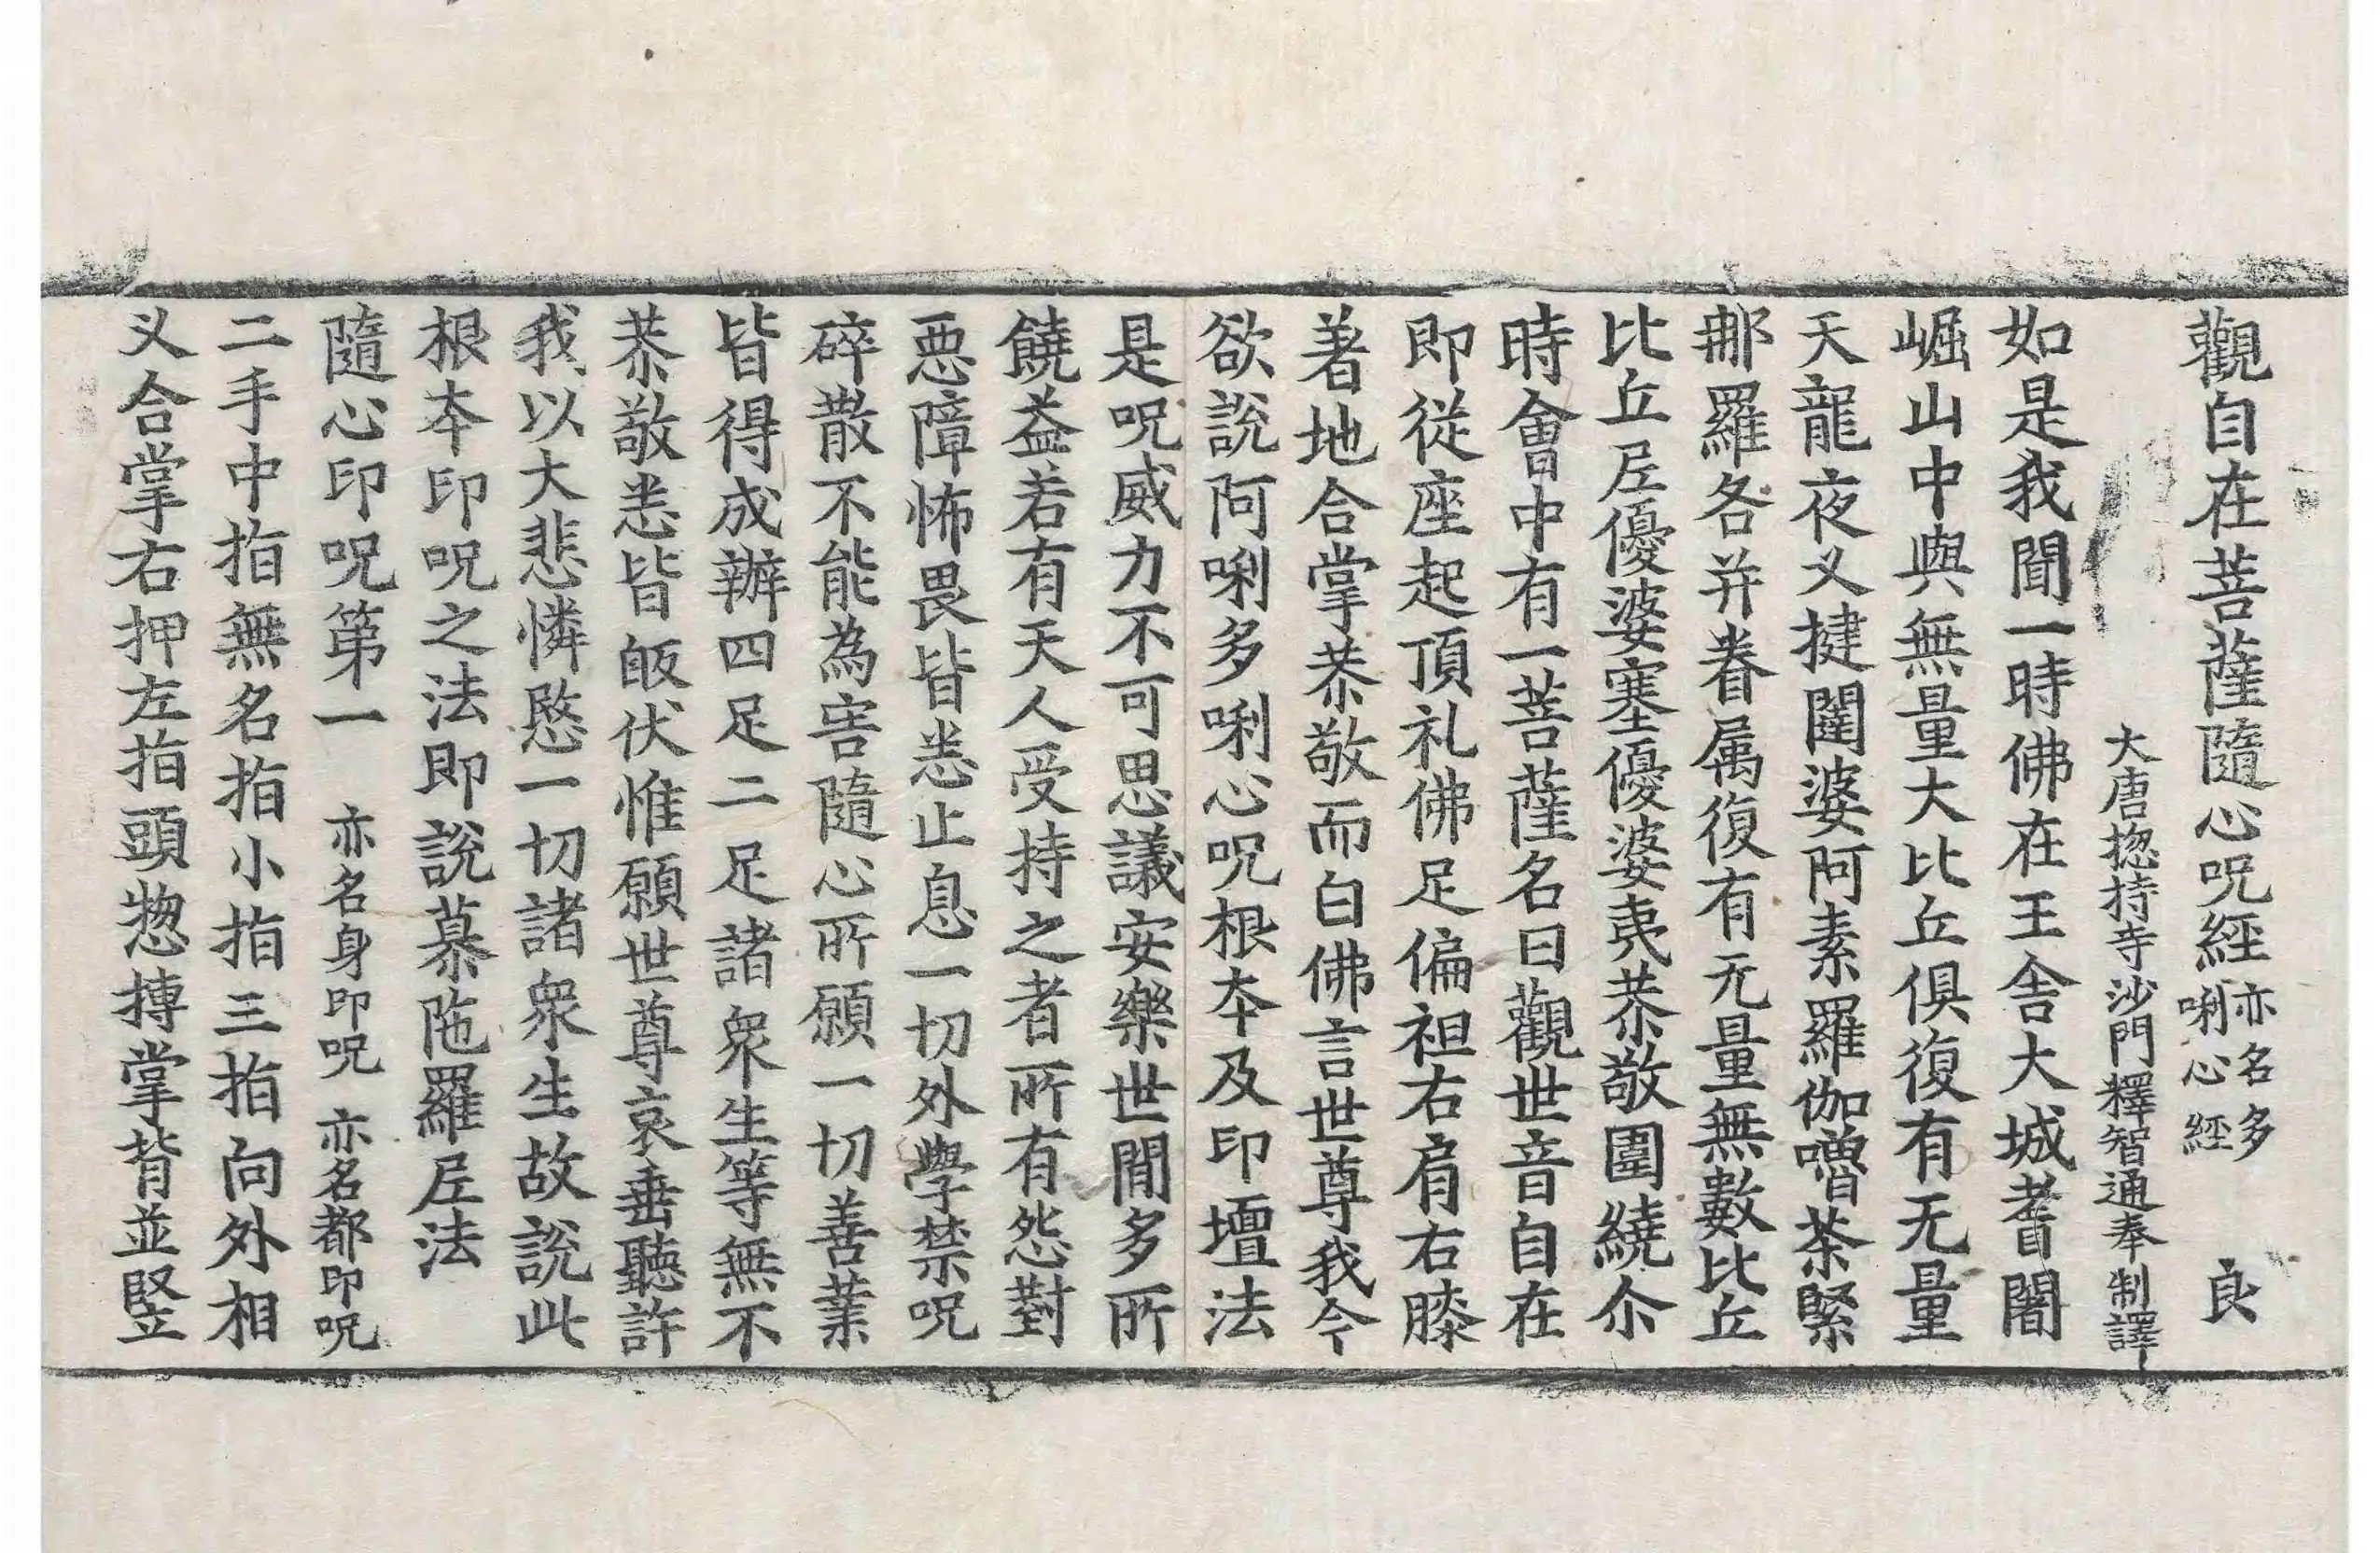 觀自在菩薩隨心呪經亦名多唎心經 良
大唐揔持寺沙門釋智通奉 制譯
如是我聞一時佛在王舍大城耆闍
崛山中與無量大比丘俱復有无量
天龍夜叉揵闥婆阿素羅伽嚕茶緊
那羅各并眷属復有无量無數比丘
比丘尼優婆塞優婆夷恭敬圍繞尒
時會中有一菩薩名曰觀世音自在
即從座起頂礼佛足偏袒右肩右膝
著地合掌恭敬而白佛言世尊我今
欲說阿唎多唎心呪根本及印壇法
是呪威力不可思議安樂世間多所
饒益若有天人受持之者所有怨對
惡障怖畏皆悉止息一切外學禁呪
碎散不能為害隨心所願一切善業
皆得成辦四足二足諸衆生等無不
恭敬悉皆皈伏惟願世尊哀垂聽許
我以大悲憐愍一切諸衆生故說此
根本印呪之法即說慕陁羅尼法
隨心印呪第一 亦名身印呪 亦名都印呪
二手中指無名指小指三指向外相
叉合掌右押左指頭惣摶掌背並竪